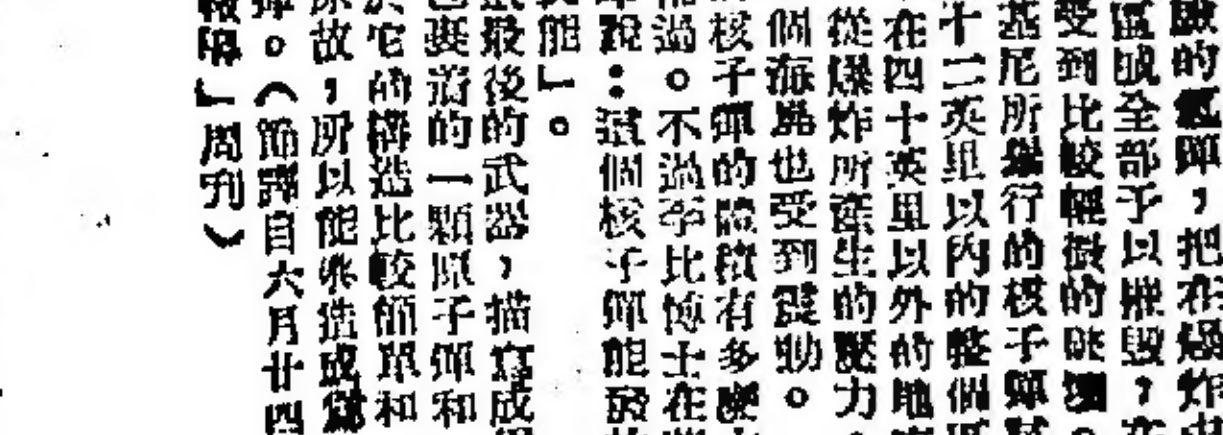 的氫彈,把在爆炸中
區域全部予以摧毀,在
受到比較輕微的破壞。
基尼所舉行的核子彈試
十二英里以內的整個
在四十英里以外的地
從爆炸所產生的壓力
個海島也受到震動。
核子彈的體積有多麼
過。不過李比博士在
說:這個核子彈能
能」。
最後的武器,描寫成
要的一顆原子彈和
它的構造比較簡單和
故,所以能夠造成
彈。(節譯自六月廿四
報」周刊)